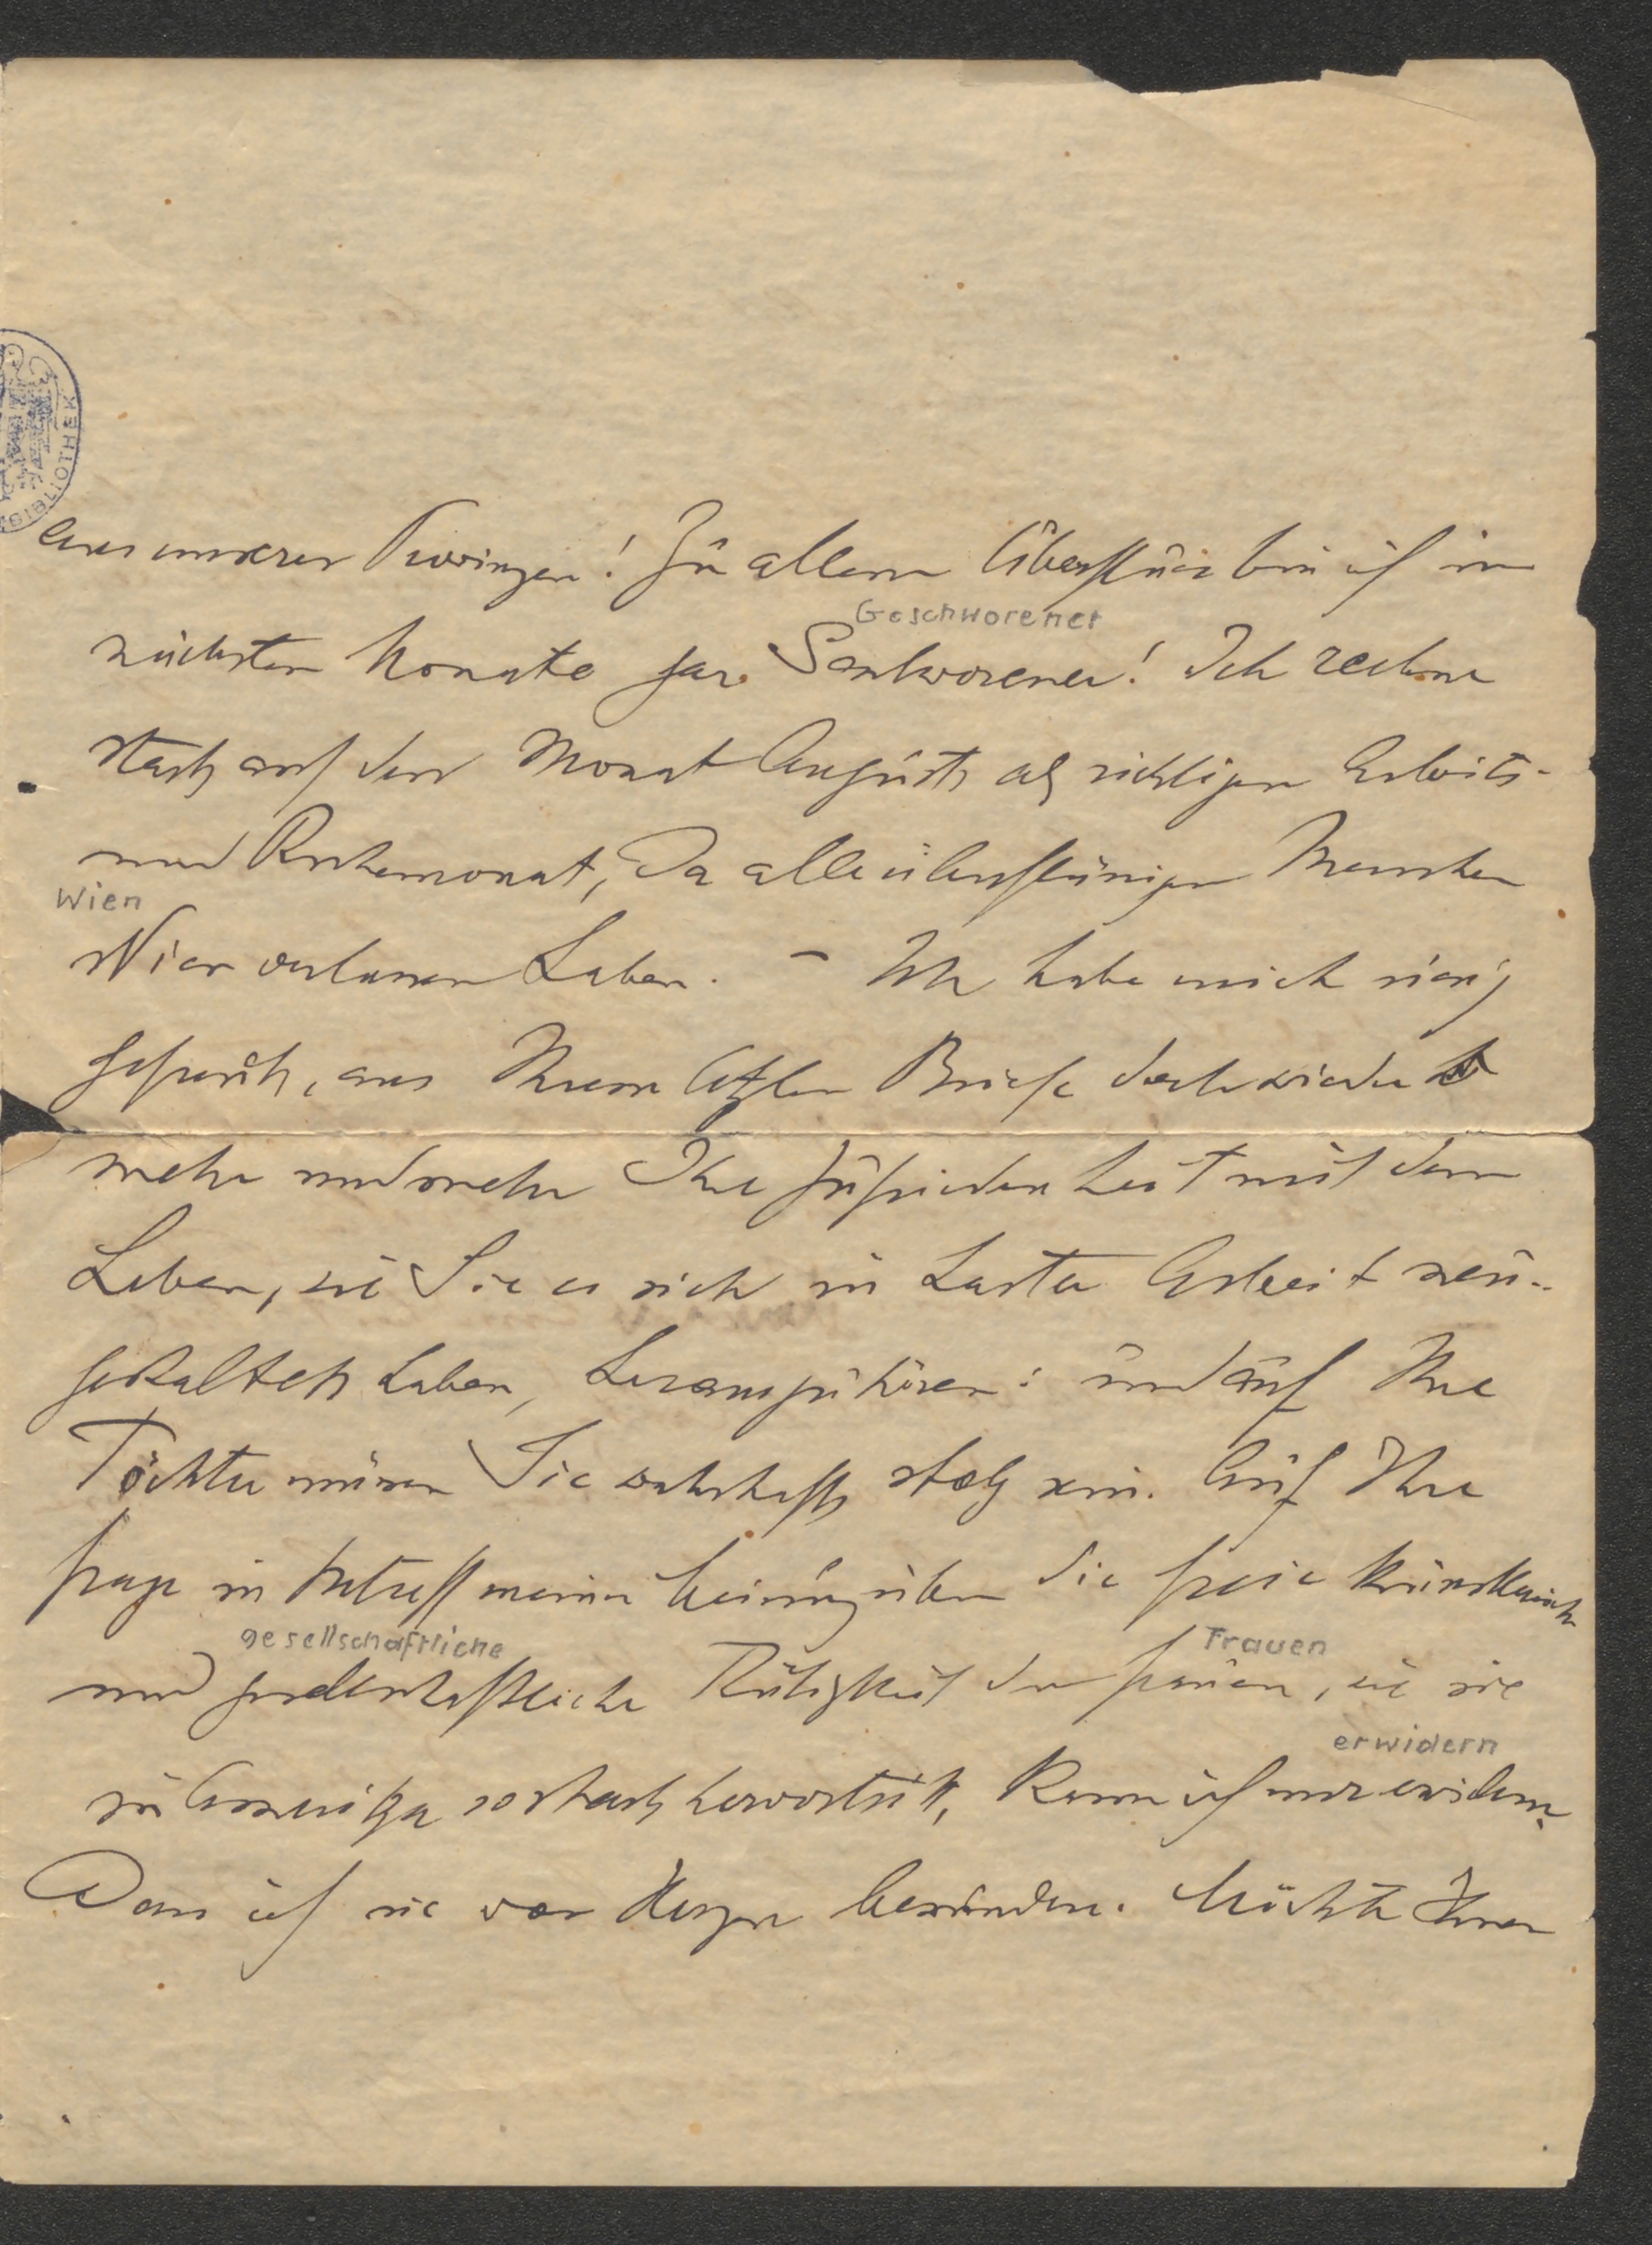 BIBLIOTHEK
aus unserer Zwingen! Zu allem Überfluss bin ich im
Geschworener
nächsten Monate gar Geschworener! Ich rechne
stark auf den Monat August als richtigen Arbeits-
und Ruhemonat, da alle überflüssigen Menschen
Wien
Wien verlassen haben. – Ich habe mich riesig
gefreut, aus Ihrem letzten Briefe doch wieder
mehr und mehr Ihre Zufriedenheit mit dem
Leben, wie Sie es sich in harter Arbeit neu-
gestaltet haben, herauszuhören: und auf Ihre
Töchter müssen Sie wahrhaft stolz sein. Auf Ihre
Frage in Betreff meiner Meinung über die freie künstlerische
gesellschaftliche Frauen
und gesellschaftliche Tätigkeit der Frauen, wie sie
erwidern
in Amerika so stark hervortritt, kann ich nur erwidern,
Dass ich sie von Herzen bewundere. Möchte Ihnen